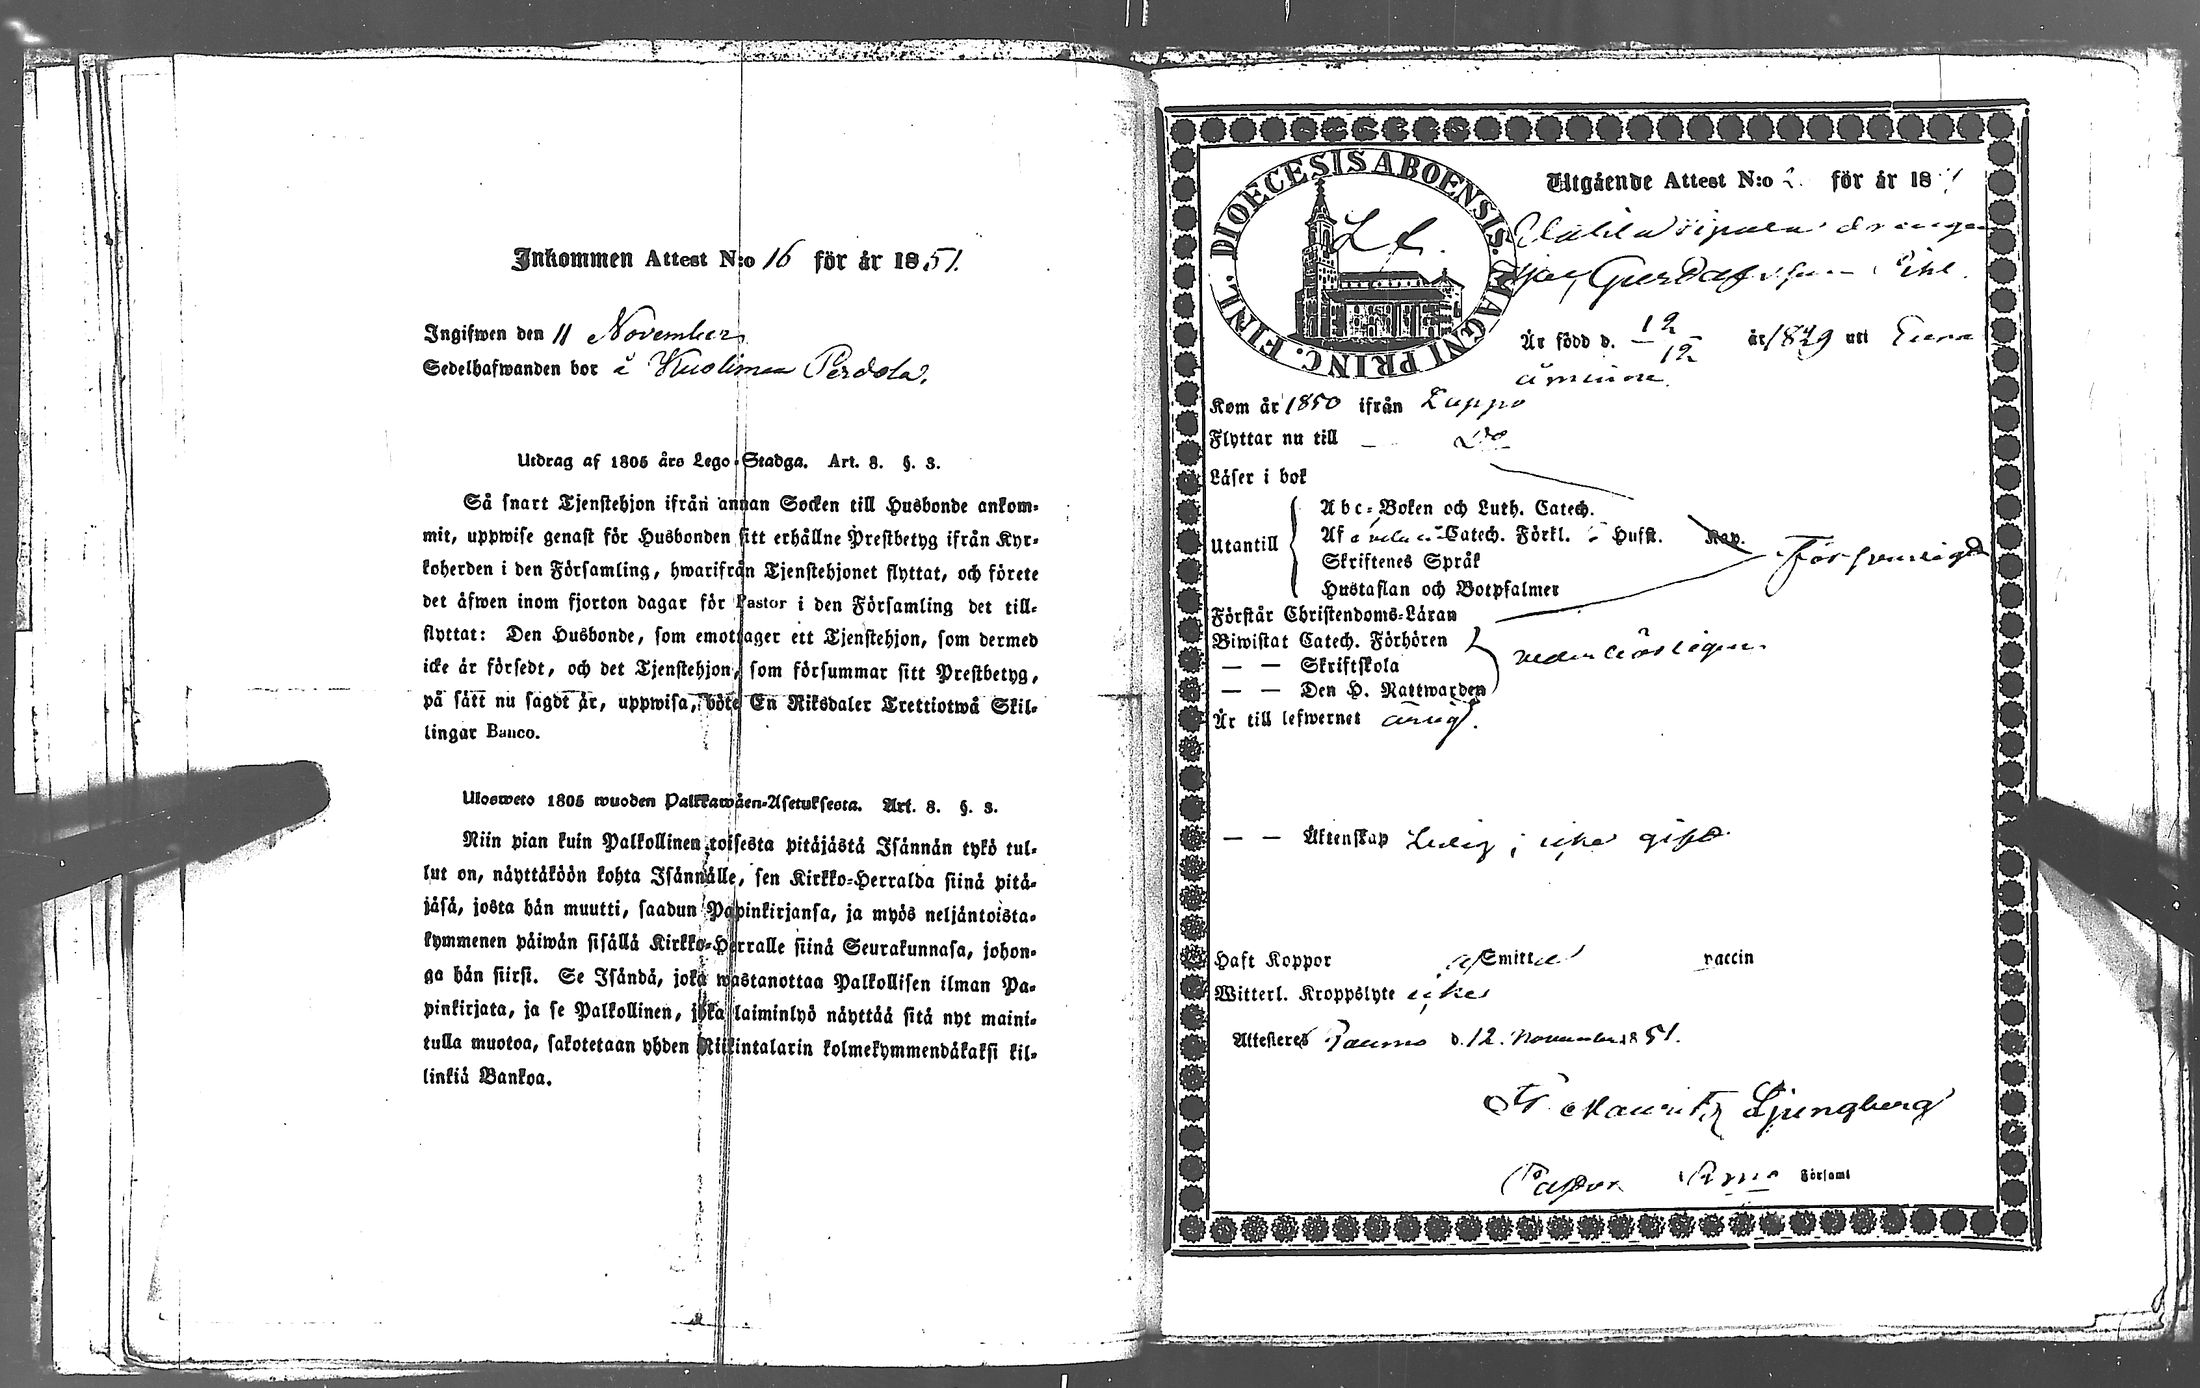 Inkommen Attest N:o 16 för år 1851.
Ingifwen den 11 November
Sedelhafwanden bor å Kuolimaa Perdola.
Utdrag af 1805 års Lego-Stadga. Art. 8. §. 3.
Så snart Tjenstehjon ifrån annan Socken till Husbonde ankom-
mit, uppwise genast för Husbonden sitt erhållne Prestbetyg ifrån Kyr-
koherden i den Församling, hwarifrån Tjenstehjonet flyttat, och förete
det äfwen inom fjorton dagar för Pastor i den Församling det till-
flyttat: Den Husbonde, som emottager ett Tjenstehjon, som dermed
icke är försedt, och det Tjenstehjon, som försummar sitt Prestbetyg,
på sätt nu sagdt är, uppwisa, böte En Riksdaler Trettiotwå Skil-
lingar Banco.
Ulosweto 1805 wuoden Palkkawäen-Asetuksesta. Art. 8. §. 3.
Niin pian kuin Palkollinen toisesta pitäjästä Isännän tykö tul-
lut on, näyttäköön kohta Isännälle, sen Kirkko-Herralda siinä pitä-
jäsä, josta hän muutti, saadun Papinkirjansa, ja myös neljäntoista-
kymmenen päiwän sisällä Kirkko-Herralle siinä Seurakunnasa, johon-
ga hän siirsi. Se Isändä, joka wastanottaa Palkollisen ilman Pa-
pinkirjata, ja se Palkollinen, joka laiminlyö näyttää sitä nyt maini-
tulla muotoa, sakotetaan yhden Riikintalarin kolmekymmendäkaksi kil-
linkiä Bankoa.
DIOECESIS ABOENSIS. MAGNI PRINC. FINL.
Utgående Attest N:o 2 för år 18 1
drängen
Gustafsson
Är född d. 12/12 år 1829 uti Eura
åminne.
Kom år 1850 ifrån Lappo
Flyttar nu till — Do
Läser i bok
Utantill
Abc-Boken och Luth. Catech.
Af Catech. Förkl. Husst. Kap.
Skriftenes Språk
Hustaflan och Botpsalmer
försvarligt
Förstår Christendoms-Läran
Biwistat Catech. Förhören
— — Skriftskola
— — Den H. Nattwarden
vederbörligen.
Är till lefwernet ärlig.
— — Äktenskap Ledig; icke gift
Haft Koppor Smitt vaccin
Witterl. Kroppslyte icke
Attesteres Raumo d. 12. November 1851.
Fr Mauritz Ljungberg
Pastor Rmo Församl